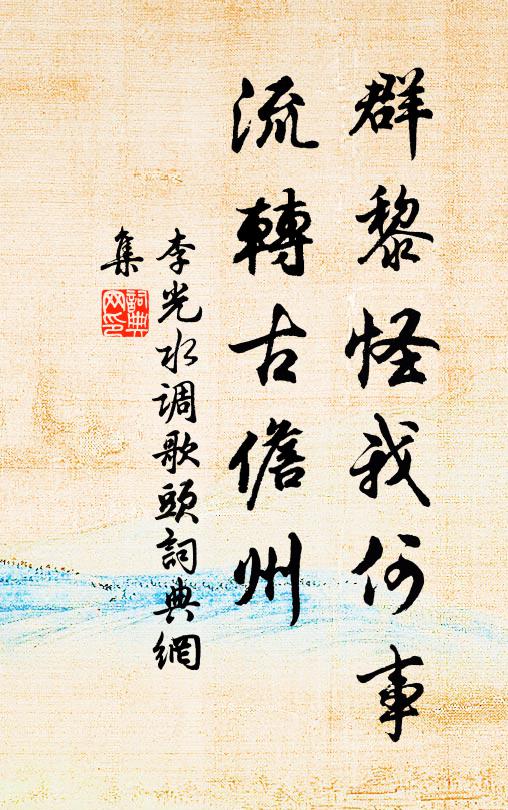 群黎怪我何事
流轉古儋州
李光水调歌頭詞典網
集
詞典网印